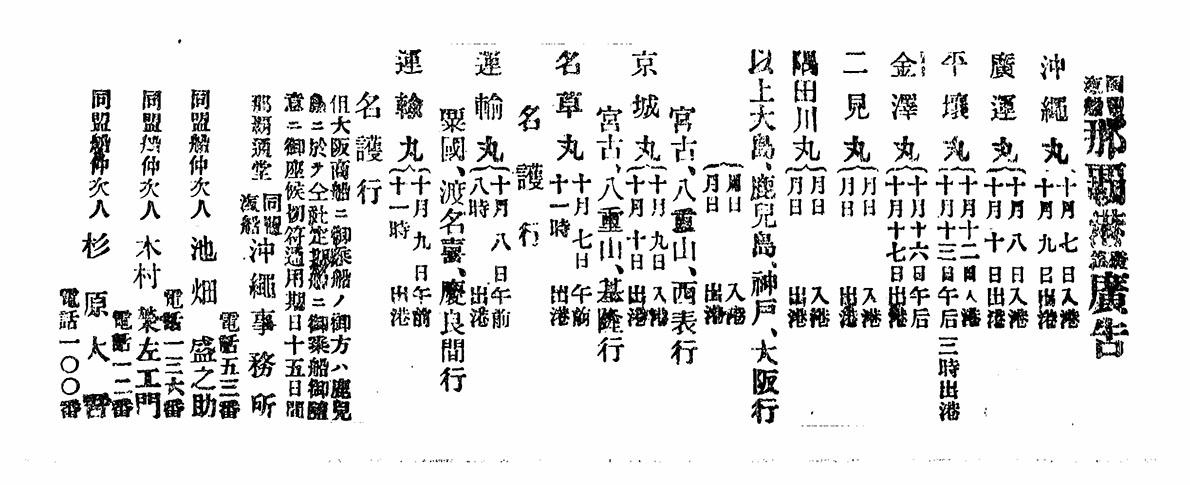 同盟滊船那覇港發着廣告
沖繩丸 十月七日入港 十月九日出港
廣運丸 十月八日入港 十月十日出港
平壤丸 十月十二日入港 十月十三日午后三時出港
金澤丸 十月十六日午后 十月十七日出港
二見丸 月日入港 月日出港
隅田川丸 月日入港 月日出港
以上大島、鹿兒島、神戸、大阪行
月日入港 月日出港
宮古、八重山、西表行
京城丸 十月九日入港 十月十日出港
宮古、八重山、基隆行
名草丸 十月七日午前十一時出港
名護行
運輸丸 十月八日午前八時出港
粟國、渡名喜、慶良間行
運輸丸 十月九日午前十一時出港
名護行
但大阪商船ニ御乘船ノ御方ハ鹿兒
島ニ於テ仝社定期船ニ御乘船御隨
意ニ御座候切符通用期日十五日間
那覇通堂 同盟滊船 沖繩事務所
電話五三番
同盟船仲次人 池畑盛之助
電話一三六番
同盟船仲次人 木村榮左エ門
電話一二番
同盟船仲次人 杉原大
電話一〇〇番